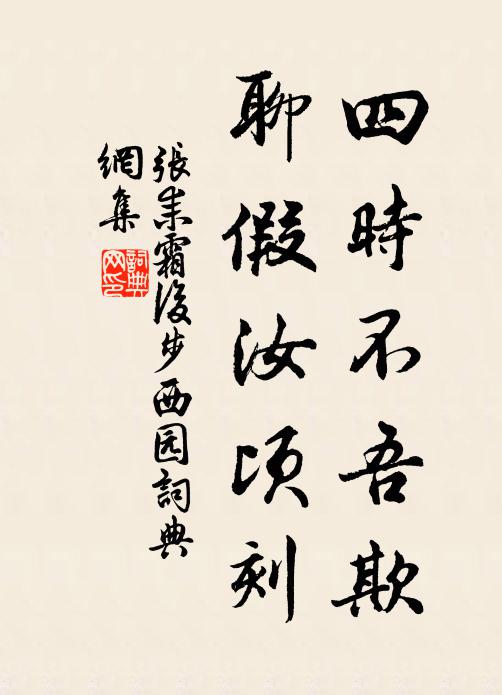 四時不吾欺
聊假汝頃刻
張耒霜後步西园詞典
網集
詞典
网印